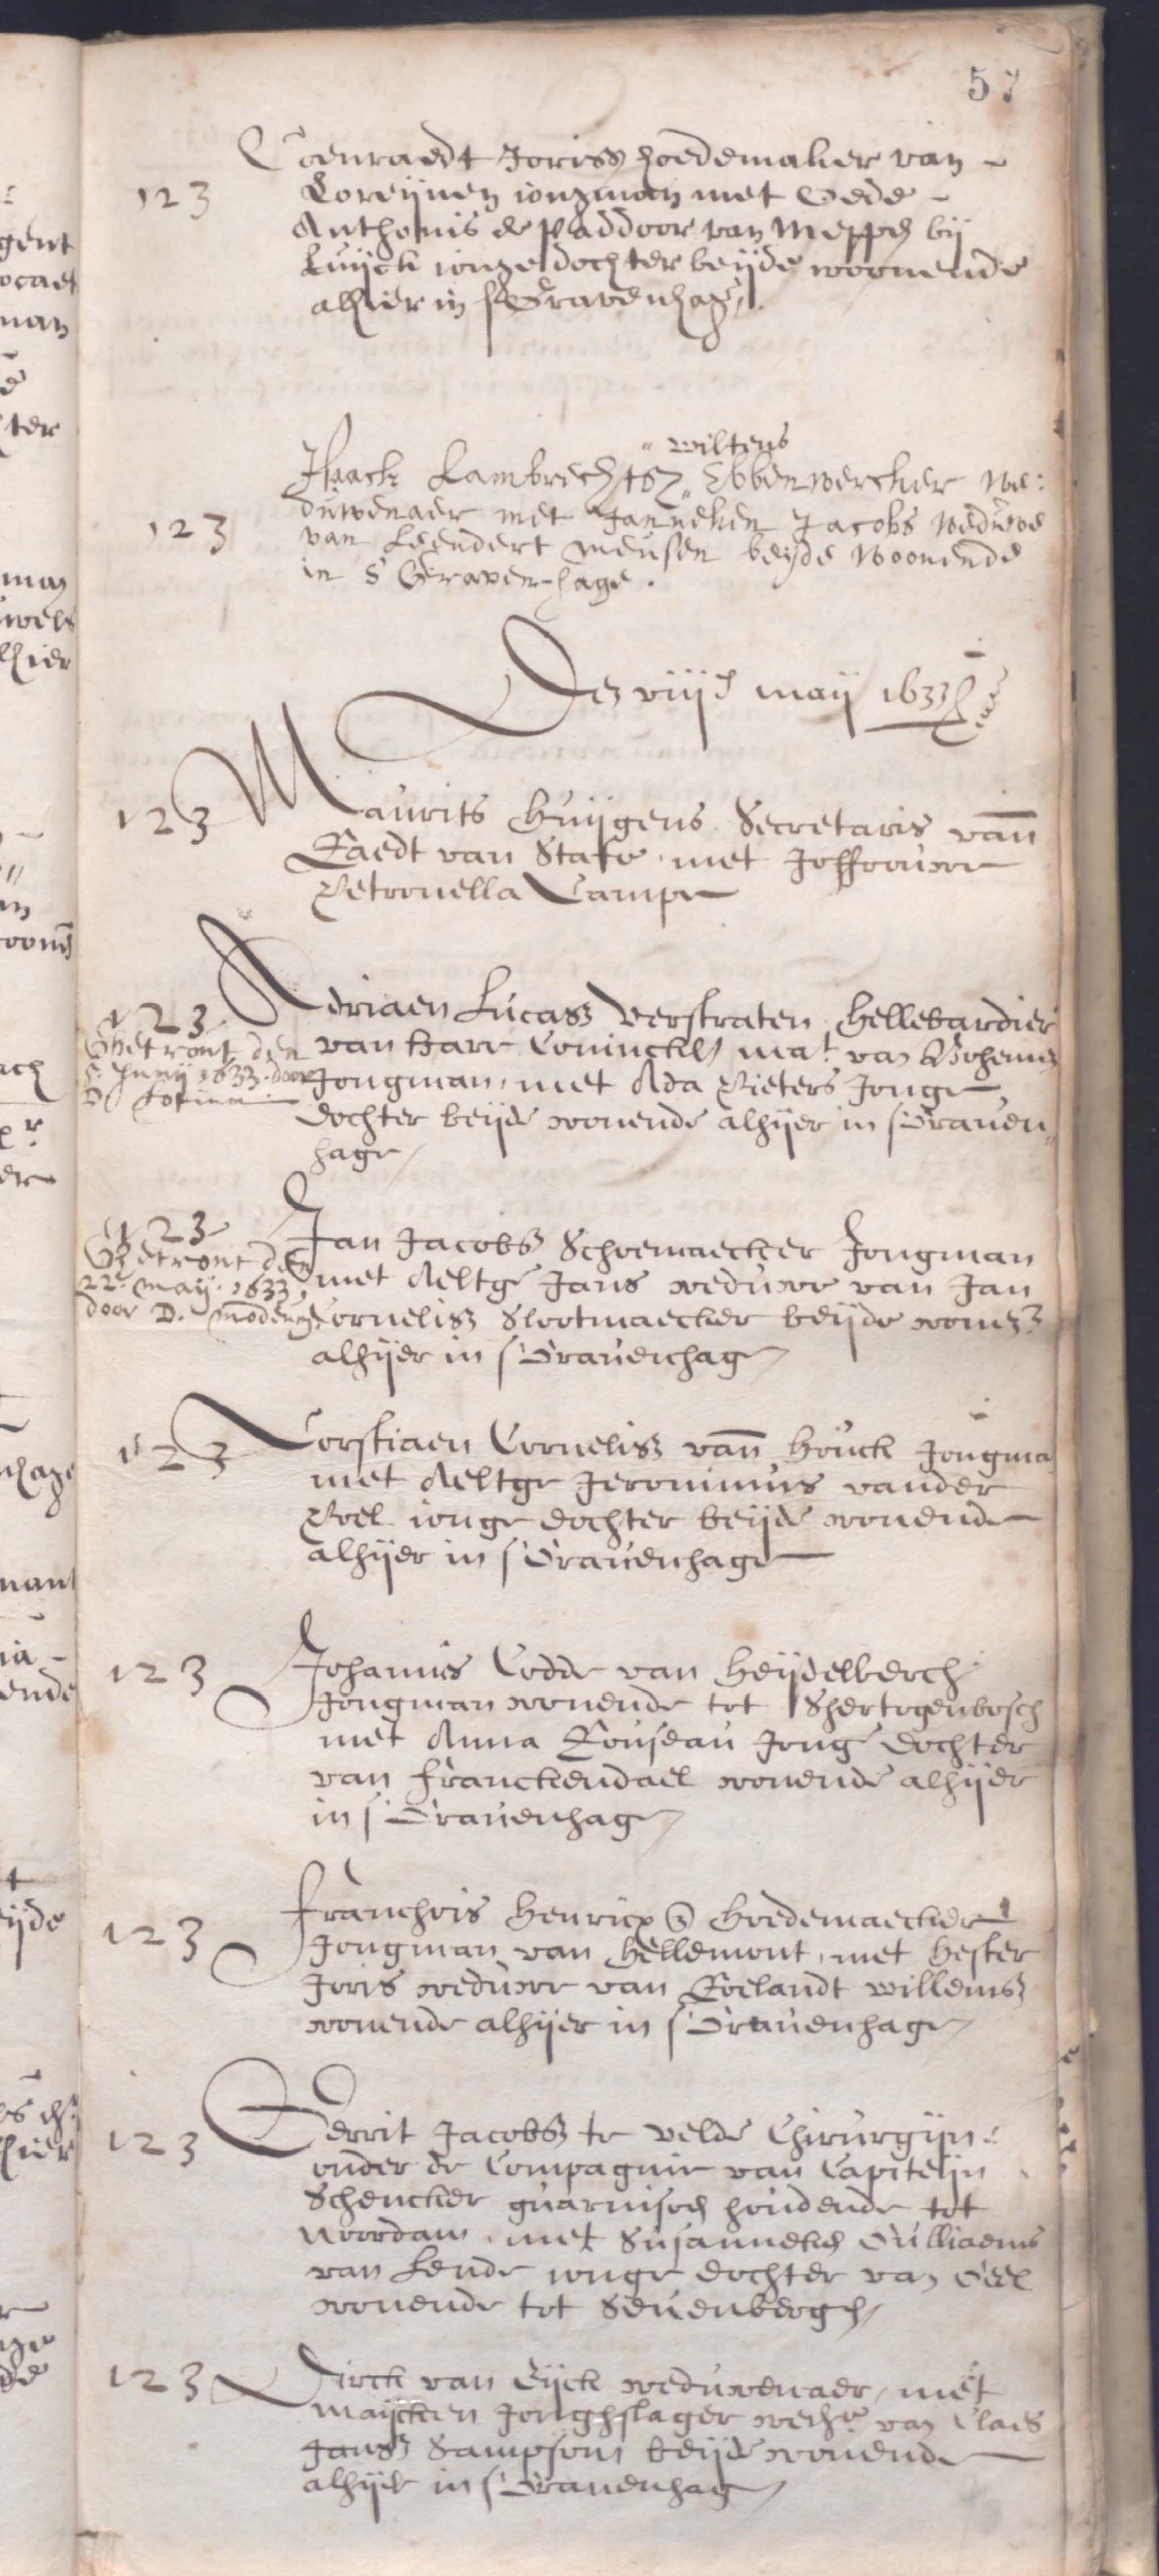 57
Coenraedt Joriss hoedemaker van
123
Loreijnen iongman met Oede
Anthonis de pladdoor van Meppen bij
Luijck ionge dochter beijde woonende
alhier in sGravenhage
wiltens
Isack Lambrechtsz Ebbenwercker We:
duwenaer met Janneken Jacobs Weduwe
123
van Leendert Meusen beijde Woonende
in S Graven-hage.
Den viijen maij 1633
123
Maurits Huijgens Secretaris vann
Raedt van State met Joffrouwe
Petronella Campe
Adriaen Lucasz Verstraten Hellebardier
123
Ghetrout den
5 Junij 1633 door
D.
van haer Coninckl. mat. van Bohemen
Jongman, met Ada Pieters Jonge
dochter beijde wonende alhijer in sGraven
hage
123
Ghetrout den
22 maij 1633,
door D.
Jan Jacobsz Schoemaecker Jongman
met Aeltge Jans weduwe van Jan
Cornelisz Slootmaecker beijde wonen
alhijer in sGravenhage
123
Corstiaen Cornelisz vann Houck Jongma
met Aeltge Jeronimus vander
Poel ionge dochter beijde wonende
alhijer in sGravenhage
123
Johannes Codde van Heijdelberch
Jongman wonende tot Shertogenbosch
met Anna Rouseau Jonge dochter
van Franckendael wonende alhijer
in sGravenhage
Franchois Henricx Hoedemaecker
123
Jongman van Hellemont, met Hester
Joris weduwe van Roelandt Willemsz
wonende alhijer in sGravenhage
123
Gerrit Jacobsz te Velde Chirurgijn
onder de Compagnie van Capiteijn
Schencker guarnisoen houdende tot
Noordam, met Susanneken Guilliaems
van Lende ionge dochter van Geel
wonende tot Sevenbergen
123
Dirck van Eijck weduwenaer, met
Maijcken Jonghslager wede van Claes
Jansz Sampson beijde wonende
alhijer in sGravenhage